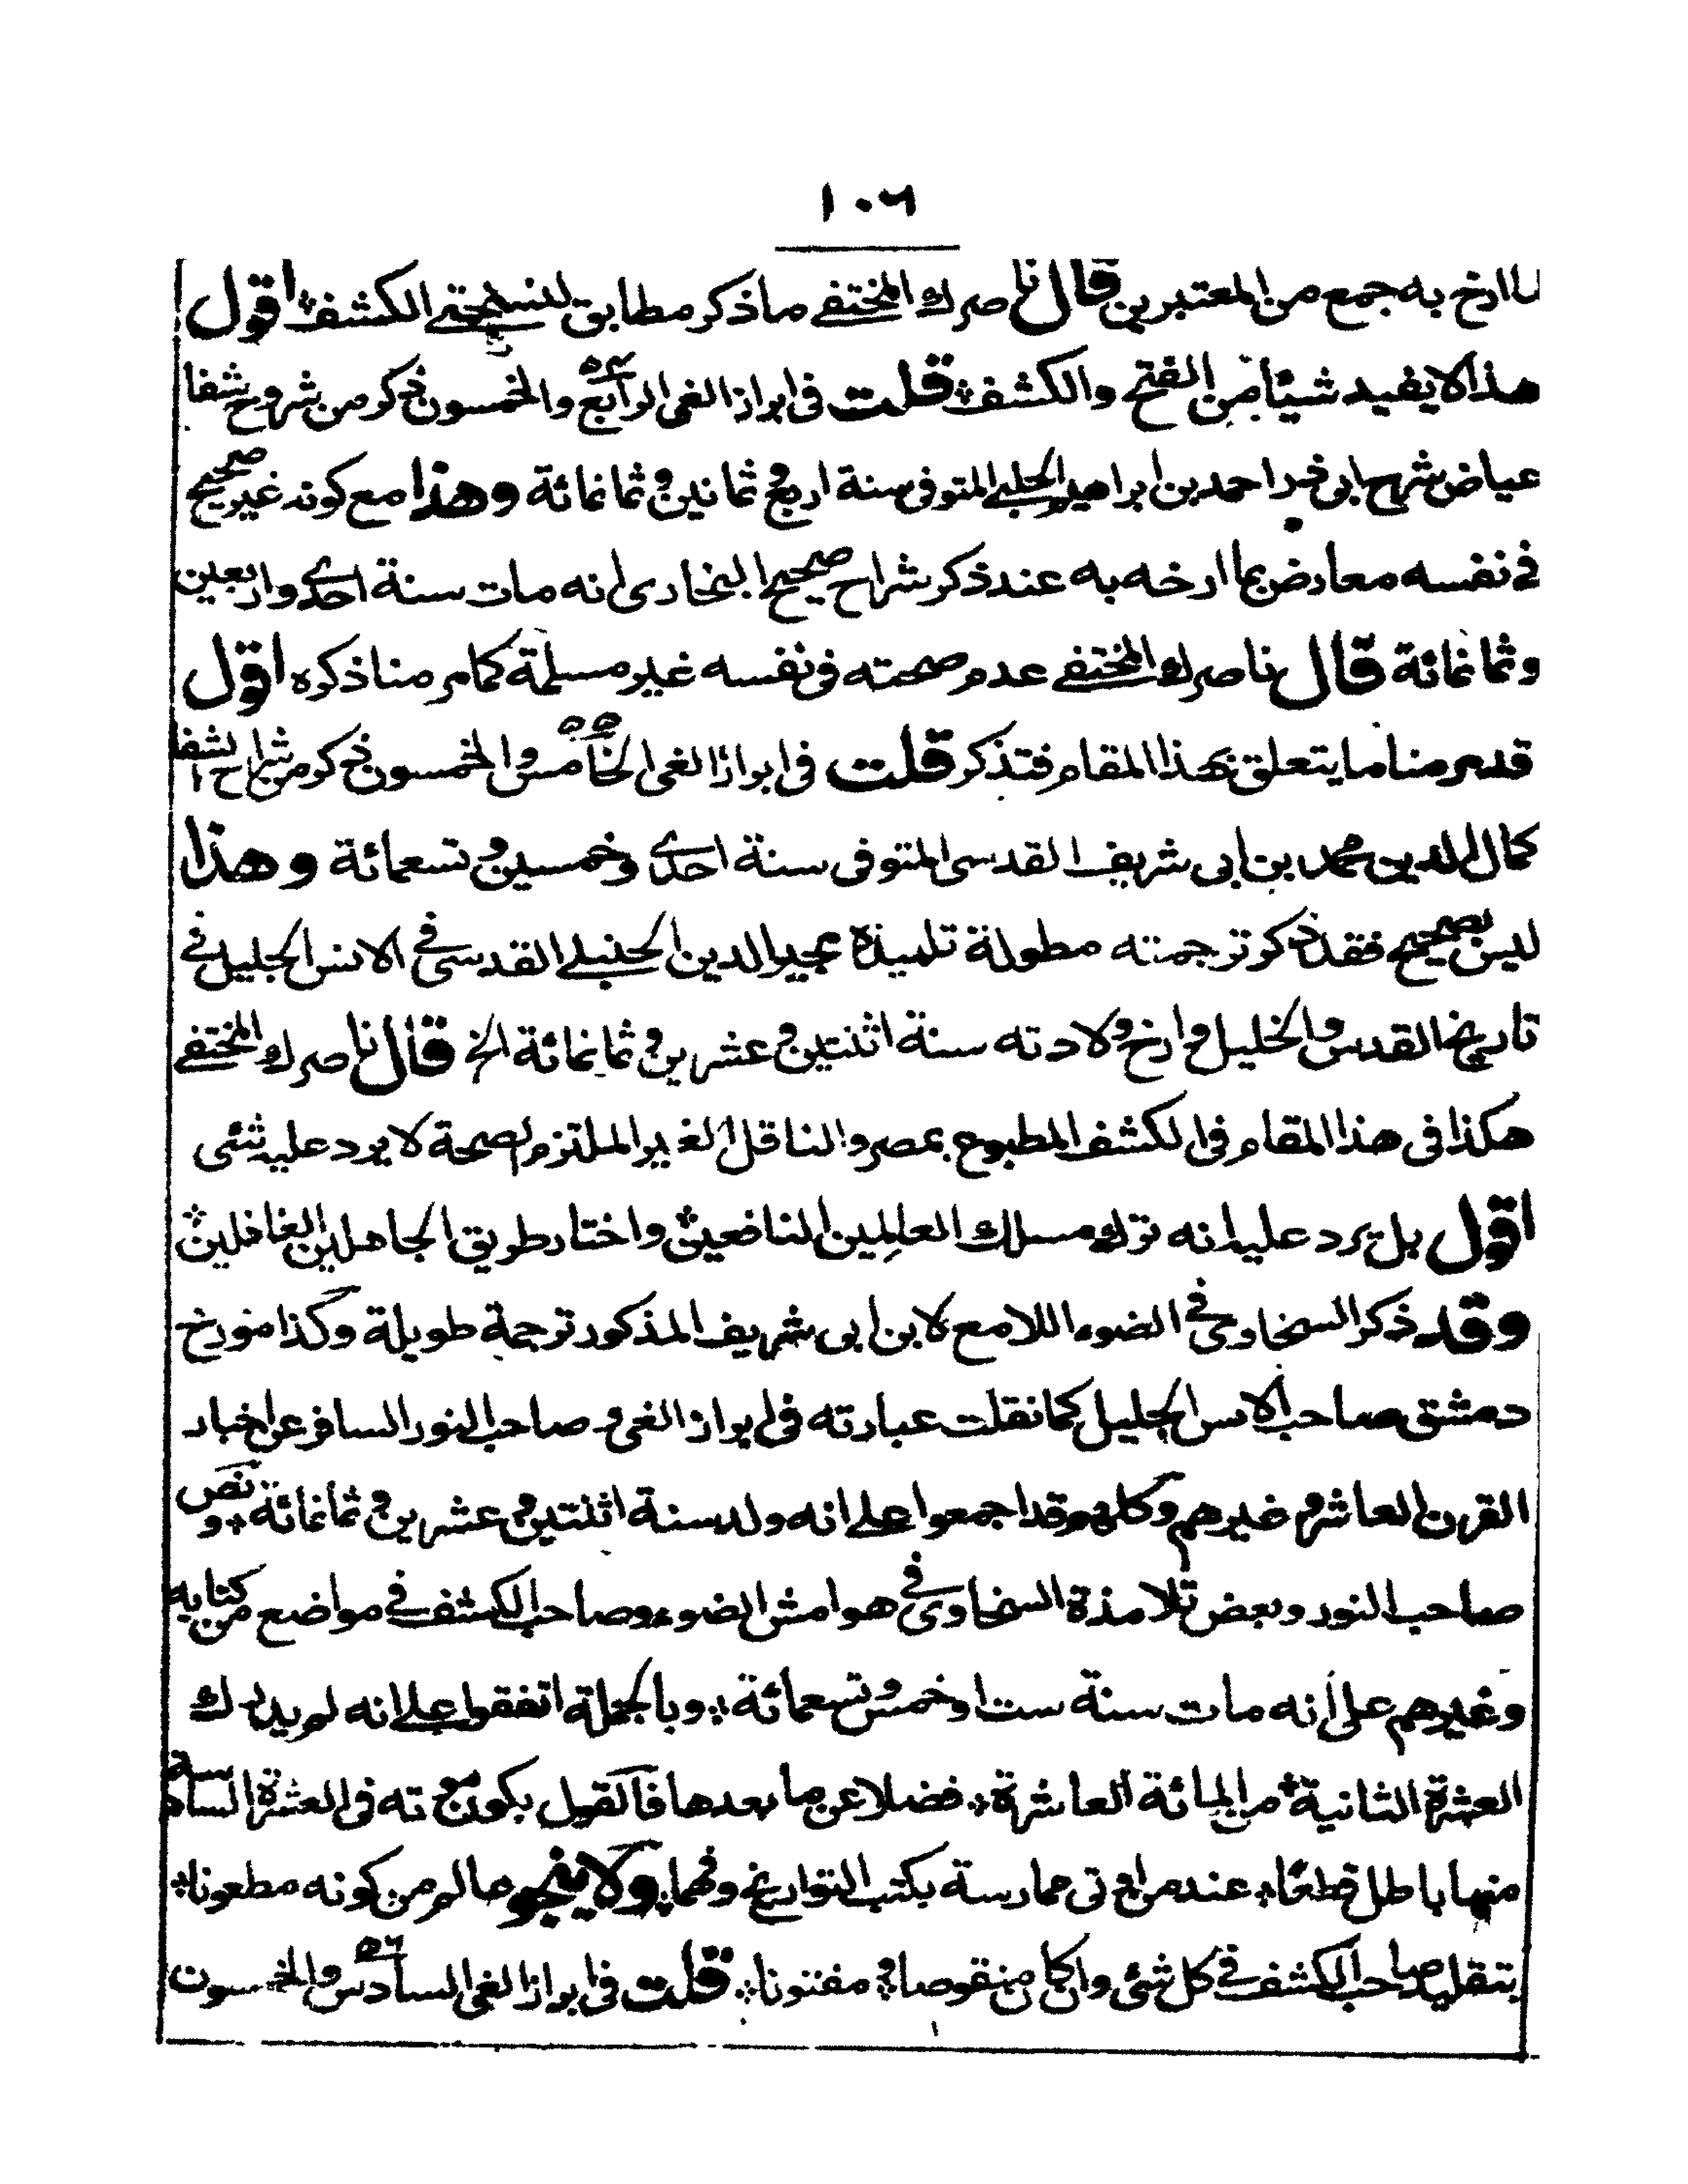 ١٠٦
لما ارخ به جمع من المعتبرين قال ناصرك المختفى ما ذكر مطابق لنسختى الكشف اقول
هذا لا يفيد شيئا من الفتح والكشف قلت فى ابراز الغى الرابع ٥٤ والخمسون ذكر من شروح شفا
عياض شرح ابى ذر احمد بن ابراهيم الحلبى المتوفى سنة اربع وثمانين وثمانمائة وهذا مع كونه غير صحيح
فى نفسه معارض بما ارخه به عند ذكر شراح صحيح البخارى انه مات سنة احدى واربعين
وثمانمائة قال ناصرك المختفى عدم صحته فى نفسه غير مسلمة كما مر منا ذكره اقول
قد مر منا ما يتعلق بهذا المقام فتذكر قلت فى ابراز الغى الخامس ٥٥ والخمسون ذكر من شراح الشفا
كمال الدين محمد بن ابى شريف القدسى المتوفى سنة احدى وخمسين وتسعمائة وهذا
ليس بصحيح فقد ذكر ترجمته مطولة تلميذه مجير الدين الحنبلى القدسى فى الانس الجليل فى
تاريخ القدس والخليل وارخ ولادته سنة اثنتين وعشرين وثمانمائة الخ قال ناصرك المختفى
هكذا فى هذا المقام فى الكشف المطبوع بمصر والناقل الغير الملتزم لصحة لا يرد عليه شئى
اقول بل يرد عليه انه ترك مسلك العالمين الناضعين واختار طريق الجاهلين الغافلين
وقد ذكر السخاوى فى الضوء اللامع لابن ابى شريف المذكور ترجمة طويلة وكذا مؤرخ
دمشق صاحب الانس الجليل كما نقلت عبارته فى ابراز الغى و صاحب النور السافر عن اخبار
القرن العاشر وغيرهم وكلهم قد اجمعوا على انه ولد سنة اثنتين وعشرين وثمانمائة ونص
صاحب النور وبعض تلامذة السخاوى فى هوامش الضوء وصاحب الكشف فى مواضع من كتابه
وغيرهم على انه مات سنة ست او خمس وتسعمائة وبالجملة اتفقوا على انه لم يدرك
العشرة الثانية من المائة العاشرة فضلا عن ما بعدها فالقول بكون موته فى العشرة السادسة
منها باطل قطعًا عند من اوتى ممارسة بكتب التواريخ وفهما ولا ينجو عالم من كونه مطعونا
بتقليد صاحب الكشف فى كل شئى وان كان منقوصا و مفتونا قلت فى ابراز الغى السادس ٥٦ والخمسون